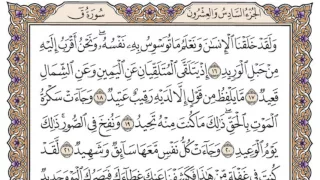 الجزء السادس والعشرون سورة ق
ولقد خلقنا الإنسان ونعلم ما توسوس به نفسه ونحن أقرب إليه
من حبل الوريد ١٦ إذ يتلقى المتلقيان عن اليمين وعن الشمال
قعيد ١٧ ما يلفظ من قول إلا لديه رقيب عتيد ١٨ وجاءت سكرة
الموت بالحق ذلك ما كنت منه تحيد ١٩ ونفخ في الصور ذلك
يوم الوعيد ٢٠ وجاءت كل نفس معها سائق وشهيد ٢١ لقد
كنت في غفلة من هذا فكشفنا عنك غطاءك فبصرك اليوم حديد